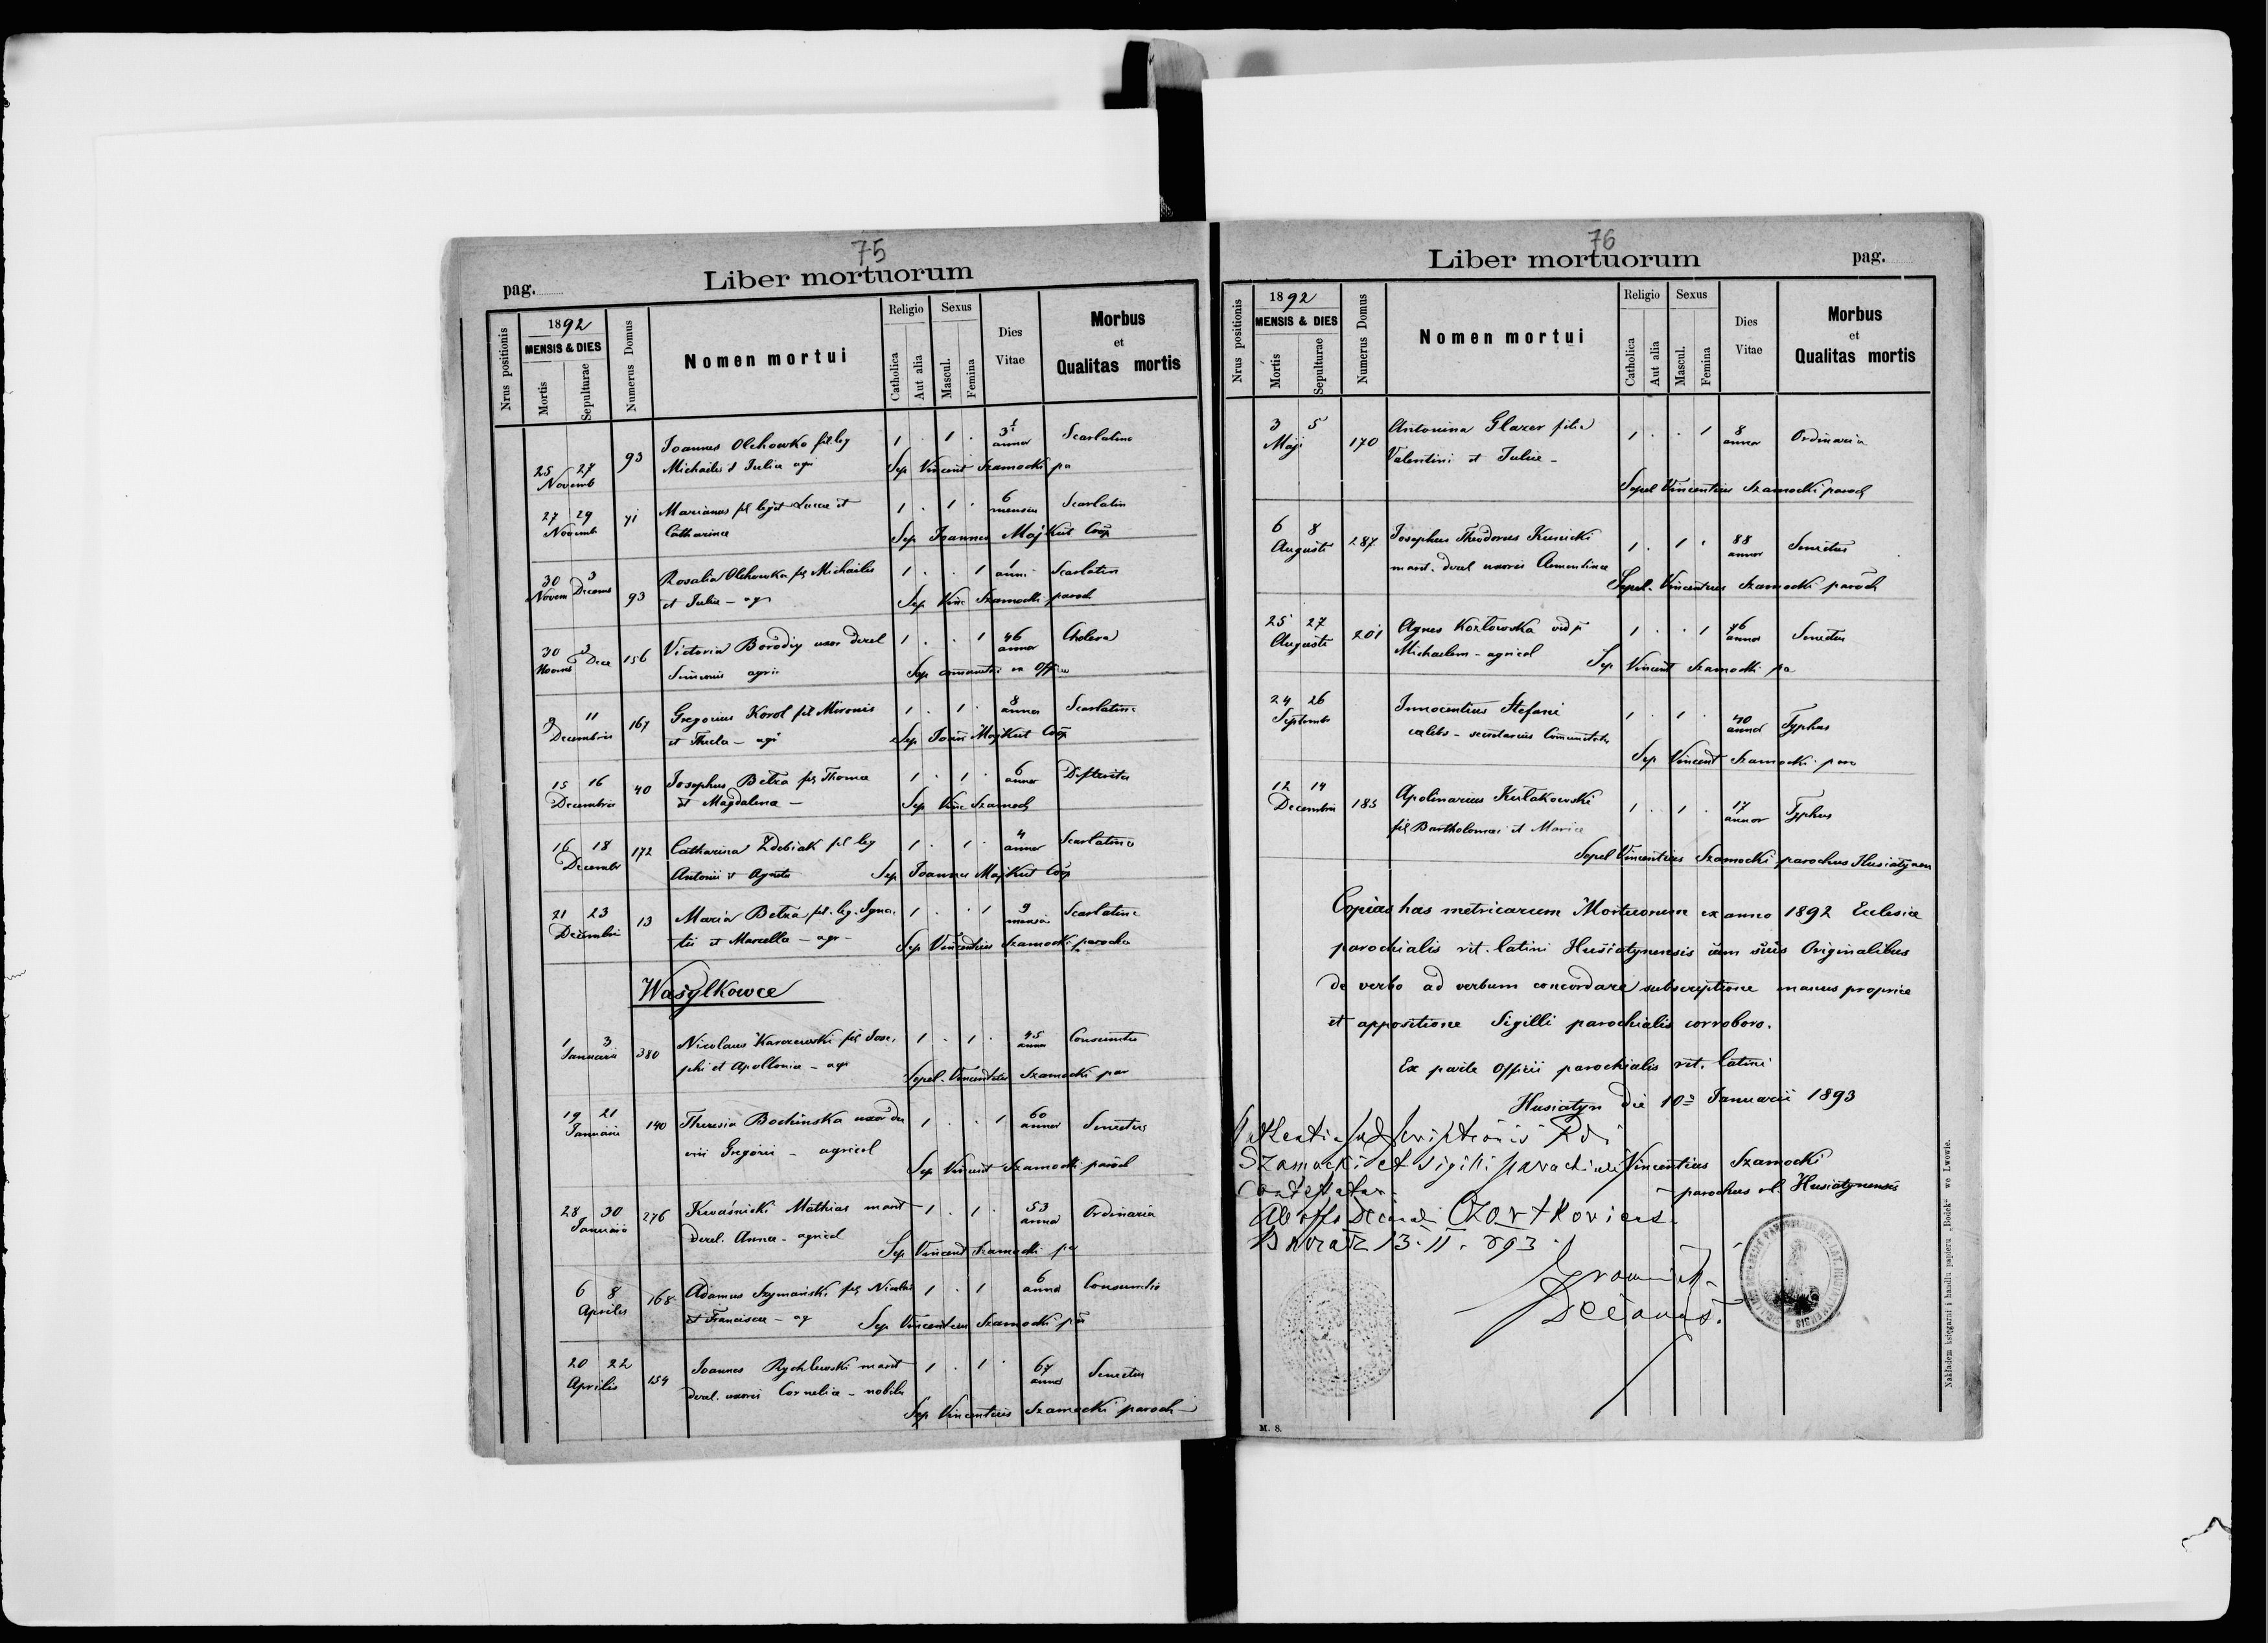 75
Liber mortuorum
pag.
Nrus positionis
1892
MENSIS & DIES
Mortis
Sepulturae
Numerus Domus
Nomen mortui
Religio
Catholica
Aut alia
Sexus
Mascul.
Femina
Dies
Vitae
Morbus
et
Qualitas mortis
25 27 93 Joannes Olchowko fil leg 1 . 1 . annor Scarlatina
Novemb Michaelis et Juliae agri Sep Vincent Szamocki pa
27 29 71 Marianus fil legit Lucae et 1 . 1 . 6 mensiu Scarlatin
Novemb Catharinae Sep Joannes Majkut Coop
30 3 93 Rosalia Olchowka fil Michaelis 1 . . 1 1 anni Scarlatin
Novem Decemb et Juliae - ag Sep Vinc Szamocki paroch
30 3 156 Victoria Borodiy uxor derel 1 . . 1 46 annor Cholera
Novemb Dece Simeonis agri Sep
9 11 167 Gregorius Korol fil Mironis 1 . 1 . 8 annor Scarlatina
Decembris et Thecla - agri Sep Joan Majkut Coop
15 16 40 Josephus Betza fil Thomae 1 . 1 . 6 annor Difteritis
Decembris et Magdalena - Sep Vinc Szamocki
16 18 172 Catharina Zdebiak fil leg 1 . 1 . 4 annor Scarlatina
Decembr Antonii et Agneta Sep Joannes Majkut Coop
21 23 13 Maria Betza fil. leg. Igna- 1 . . 1 9 mensiu Scarlatina
Decembri tii et Marcella - agr - Sep Vincentius Szamocki parochu
Wasylkowce
1 3 380 Nicolaus Karczewski fil Jose- 1 . 1 . 45 annor Consumtio
Januarii phi et Apolloniae - agr Sepel. Vincentius Szamocki par
19 21 140 Theresia Bochenska uxor de 1 . . 1 60 annor Senectus
Januarii Gregorii - agricol Sep Vincent Szamocki paroch
28 30 276 Kwaśnicki Mathias marit 1 . 1 . 53 annor Ordinaria
Januarii derel. Annae - agricol Sep Vincent Szamocki pa
6 8 168 Adamus Szymański fil Nicolai 1 . 1 6 annor Consumtio
Aprilis et Franciscae - ag Sep Vincentius Szamocki par
20 22 154 Joannes Rychlewski marit 1 . 1 . 67 annor Senectus
Aprilis derel. uxoris Corneliae - nobilis
Sep Vincentius Szamocki paroch
76
Liber mortuorum
pag.
Nrus positionis
1892
MENSIS & DIES
Mortis
Sepulturae
Numerus Domus
Nomen mortui
Religio
Catholica
Aut alia
Sexus
Mascul.
Femina
Dies
Vitae
Morbus
et
Qualitas mortis
3 5 170 Antonina Glazer filia 1 . . 1 8 annor Ordinaria
Maji Valentini et Juliae -
Sepel Vincentius Szamocki paroch
6 8 287 Josephus Theodorus Kunicki 1 . 1 . 88 annor Senectus
Augusti marit. derel uxoris Clementinae
Sepel. Vincentius Szamocki paroch
25 27 201 Agnes Kozłowska vid p 1 . . 1 76 annor Senectus
Augusti Michaelem - agricol Sep Vincent Szamocki pa
24 26 Innocentius Stefani 1 . 1 . 40 annor Typhus
Septembr caelebs - secretarius Communitatis
Sep Vincent Szamocki par
12 14 185 Apolinarius Kułakowski 1 . 1 . 17 annor Typhus
Decembris fil Bartholomaei et Mariae
Sepel Vincentius Szamocki parochus Husiatynen
Copias has metricarum Mortuorum ex anno 1892 Ecclesiae
parochialis rit. latini Husiatynensis cum suis Originalibus
de verbo ad verbum concordare subscriptione manus propriae
et appositione Sigilli parochialis corroboro.
Ex parte Officii parochialis rit. latini
Husiatyn die 10 Januarii 1893
Vincentius Szamocki
parochus r.l. Husiatynensis
Szamocki et sigilli parochialis
Contestatur
Ab offo Decanali Czortkoviens.
13. II. 893.
Decanus.
M. 8.
Nakładem księgarni i handlu papieru „Bodek“ we Lwowie.